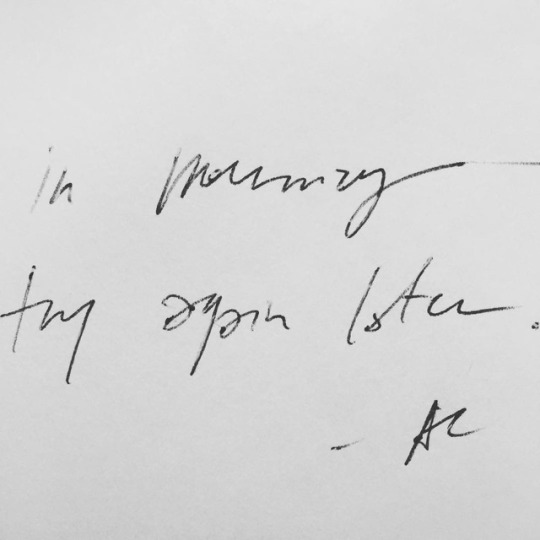 in mourning
try again later.
- AC